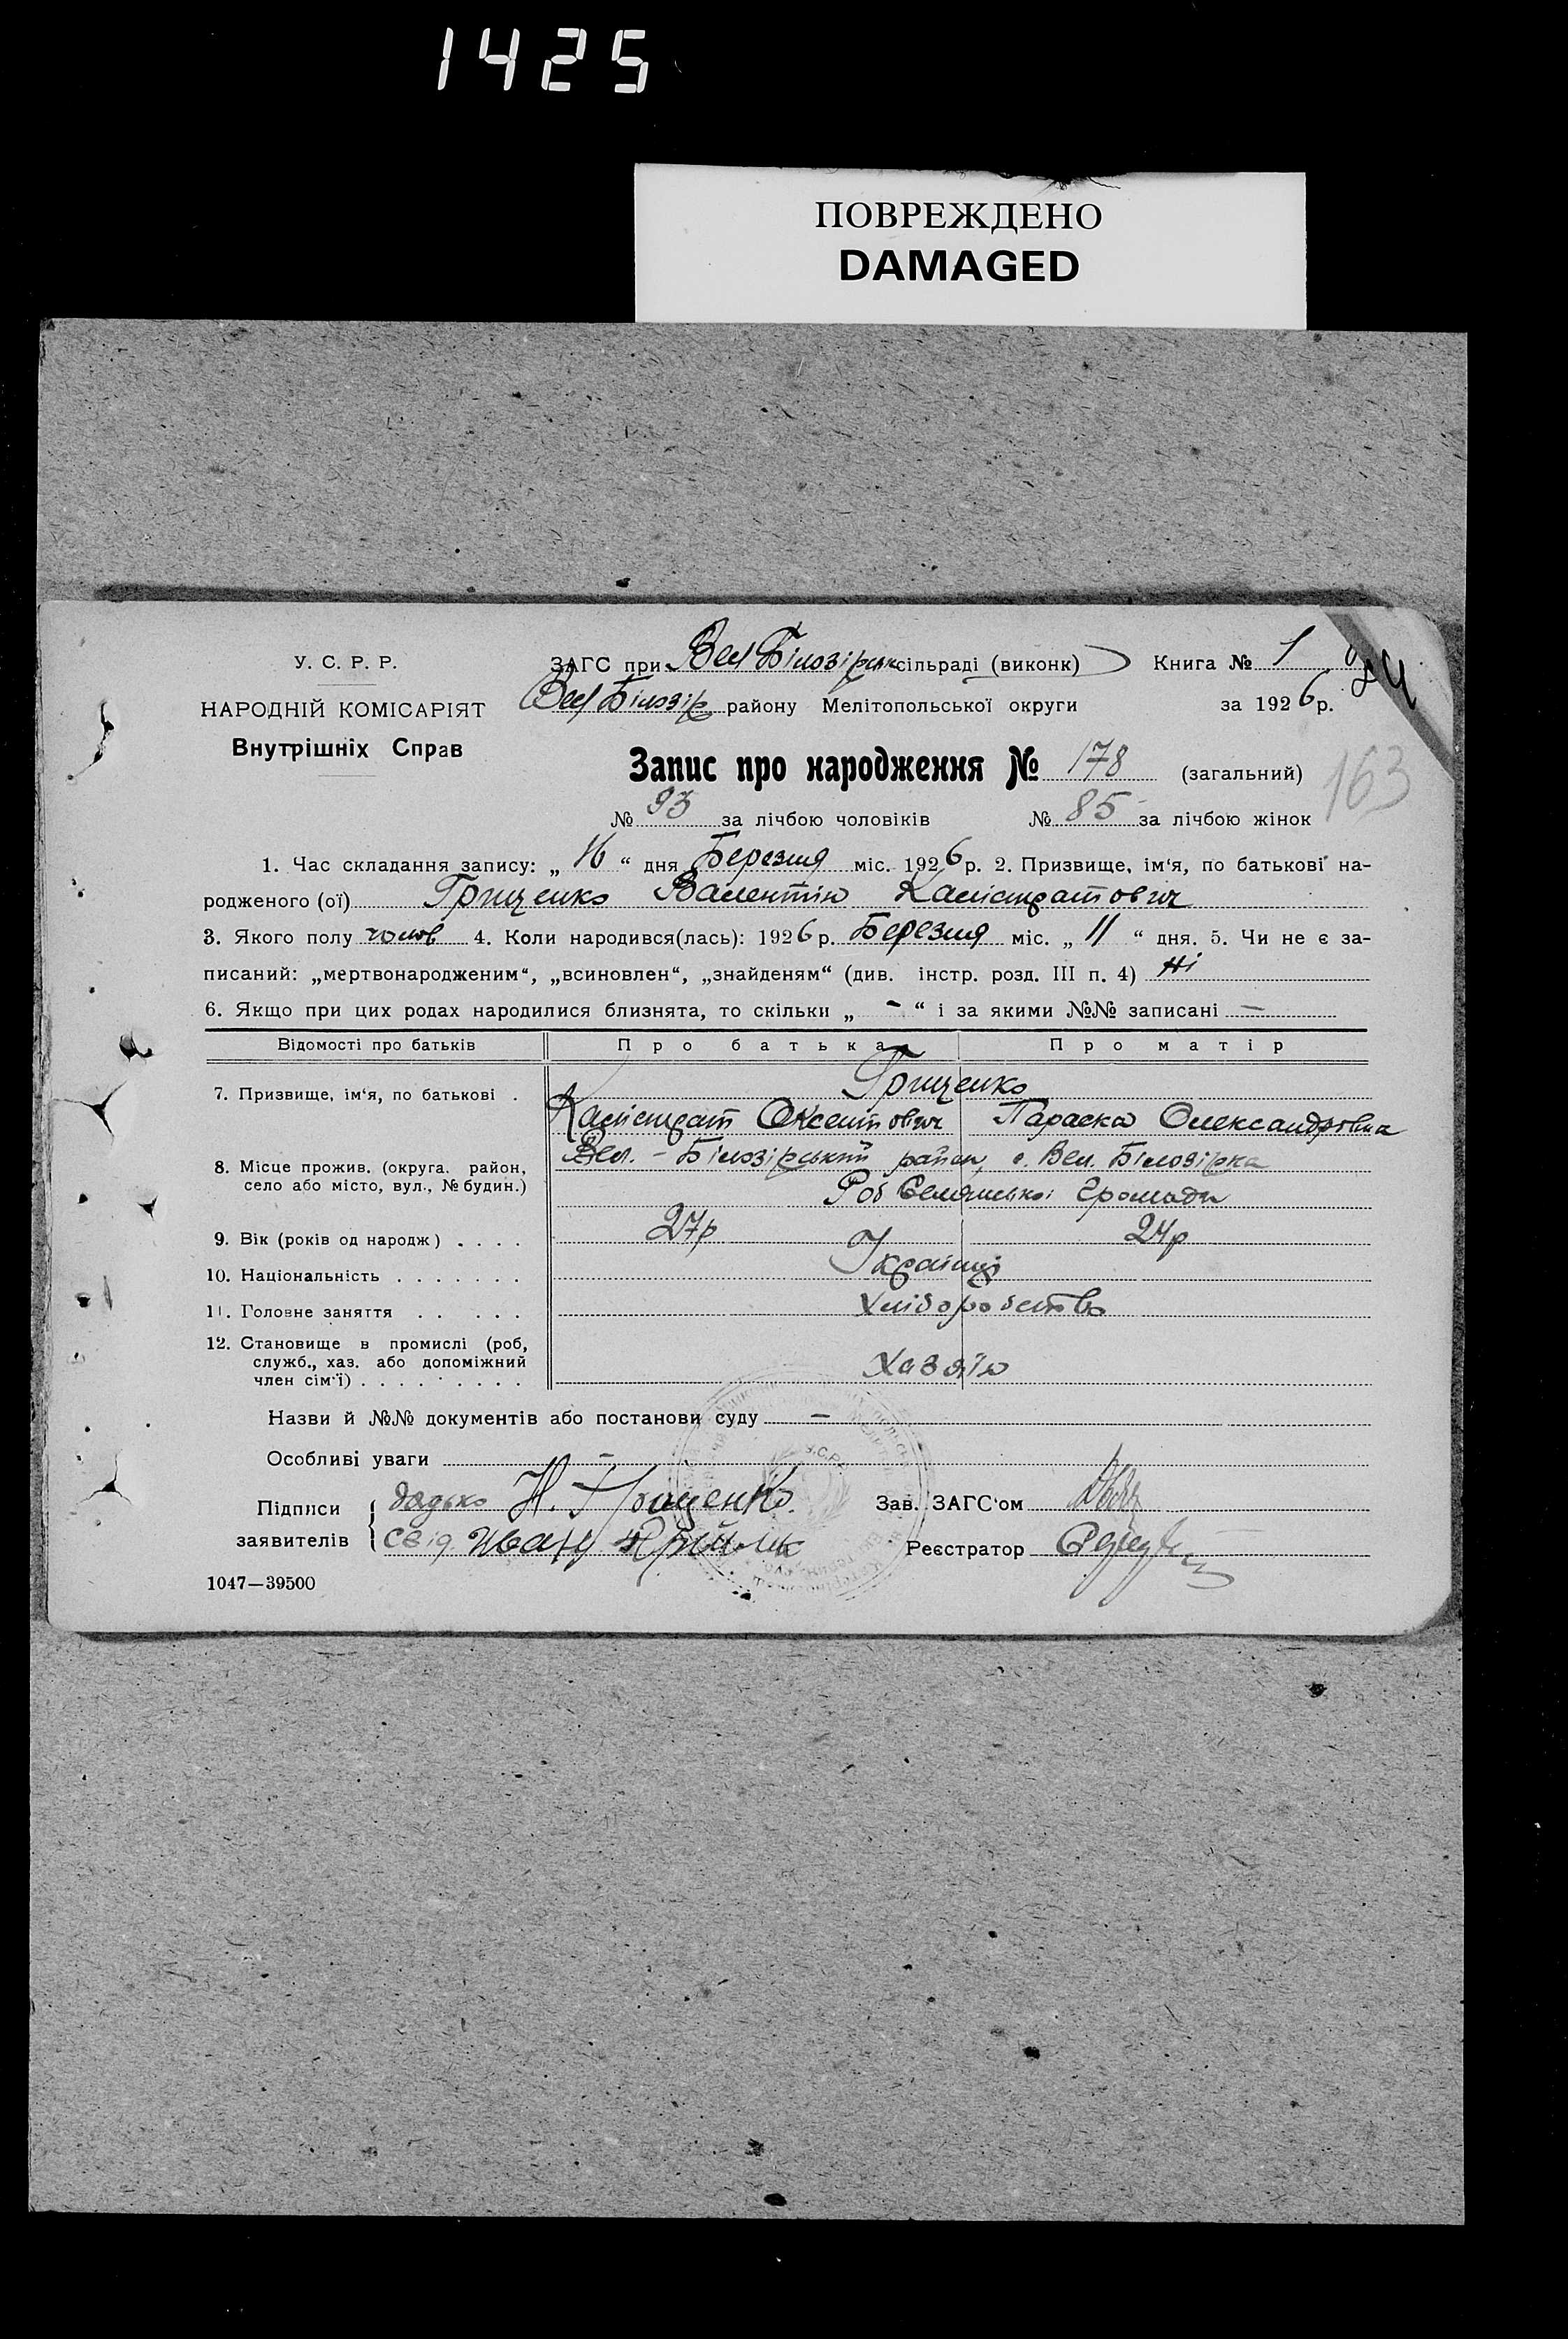 1425
ПОВРЕЖДЕНО
DAMAGED
У. С. Р. Р.
НАРОДНІЙ КОМІСАРІЯТ
Внутрішніх Справ
ЗАГС при Вел Білозірськ сільраді (виконк) Книга № 1
Вел Білозір району Мелітопольської округи за 1926 р.
24
163
Запис про народження № 178 (загальний)
№ 93 за лічбою чоловіків № 85 за лічбою жінок
1. Час складання запису: „ 16 “ дня Березня міс. 1926 р. 2. Призвище, ім‘я, по батькові на-
родженого (ої) Грищенко Валентін Калістратович
3. Якого полу чолов 4. Коли народився(лась): 1926 р. Березня міс. „ 11 “ дня. 5. Чи не є за-
писаний: „мертвонародженим“, „всиновлен“, „знайденям“ (див. інстр. розд. III п. 4) Ні
6. Якщо при цих родах народилися близнята, то скільки „ - “ і за якими №№ записані —
Відомості про батьків Про батька Про матір
7. Призвище, ім‘я, по батькові . Грищенко
Калістрат Оксентович Параска Олександровна
8. Місце прожив. (округа. район, село або місто, вул., № будин.) Вел. - Білозірський район, с. Вел. Білозірка
Роб Селянської Громади
9. Вік (років од народж) . . . . 27р 24р
10. Національність . . . . . . . Українці
11. Головне заняття . . . . . Хліборобство
12. Становище в промислі (роб, служб., хаз. або допоміжний член сім‘ї) . . . . . . . . . Хазяїн
Назви й №№ документів або постанови суду —
Особливі уваги —
Підписи заявителів
дядько Н. Грищенко Зав. ЗАГС‘ом
Свід. Иван Реєстратор
У.С.Р.Р.
1047—39500